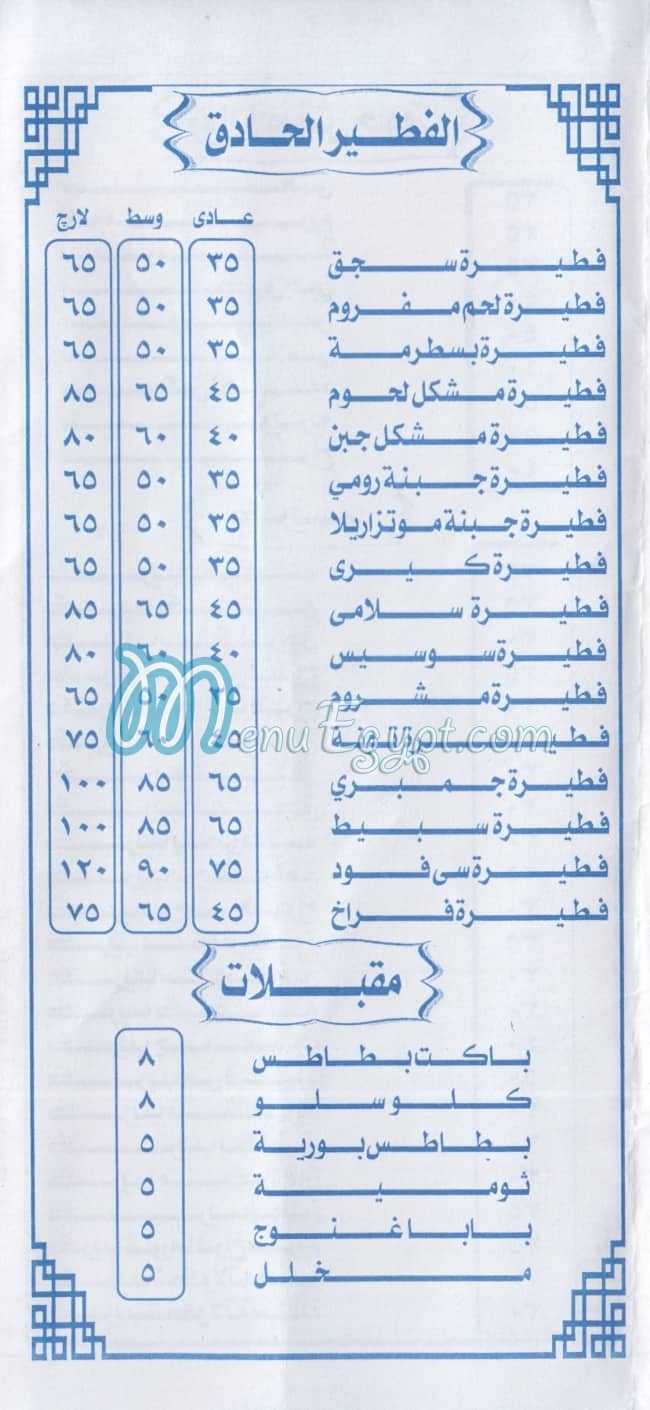 الفطير الحادق
عادى وسط لارج
فطيرة سجق ٣٥ ٥٠ ٦٥
فطيرة لحم مفروم ٣٥ ٥٠ ٦٥
فطيرة بسطرمة ٣٥ ٥٠ ٦٥
فطيرة مشكل لحوم ٤٥ ٦٥ ٨٥
فطيرة مشكل جبن ٤٠ ٦٠ ٨٠
فطيرة جبنة رومي ٣٥ ٥٠ ٦٥
فطيرة جبنة موتزاريلا ٣٥ ٥٠ ٦٥
فطيرة كيرى ٣٥ ٥٠ ٦٥
فطيرة سلامى ٤٥ ٦٥ ٨٥
فطيرة سوسيس ٤٠ ٦٠ ٨٠
فطيرة مشروم ٣٥ ٥٠ ٦٥
فطيرة ٤٥ ٦٠ ٧٥
MenuEgypt.com
فطيرة جمبري ٦٥ ٨٥ ١٠٠
فطيرة سبيط ٦٥ ٨٥ ١٠٠
فطيرة سى فود ٧٥ ٩٠ ١٢٠
فطيرة فراخ ٤٥ ٦٥ ٧٥
مقبلات
باكت بطاطس ٨
كلو سلو ٨
بطاطس بورية ٥
ثومية ٥
بابا غنوج ٥
مخلل ٥